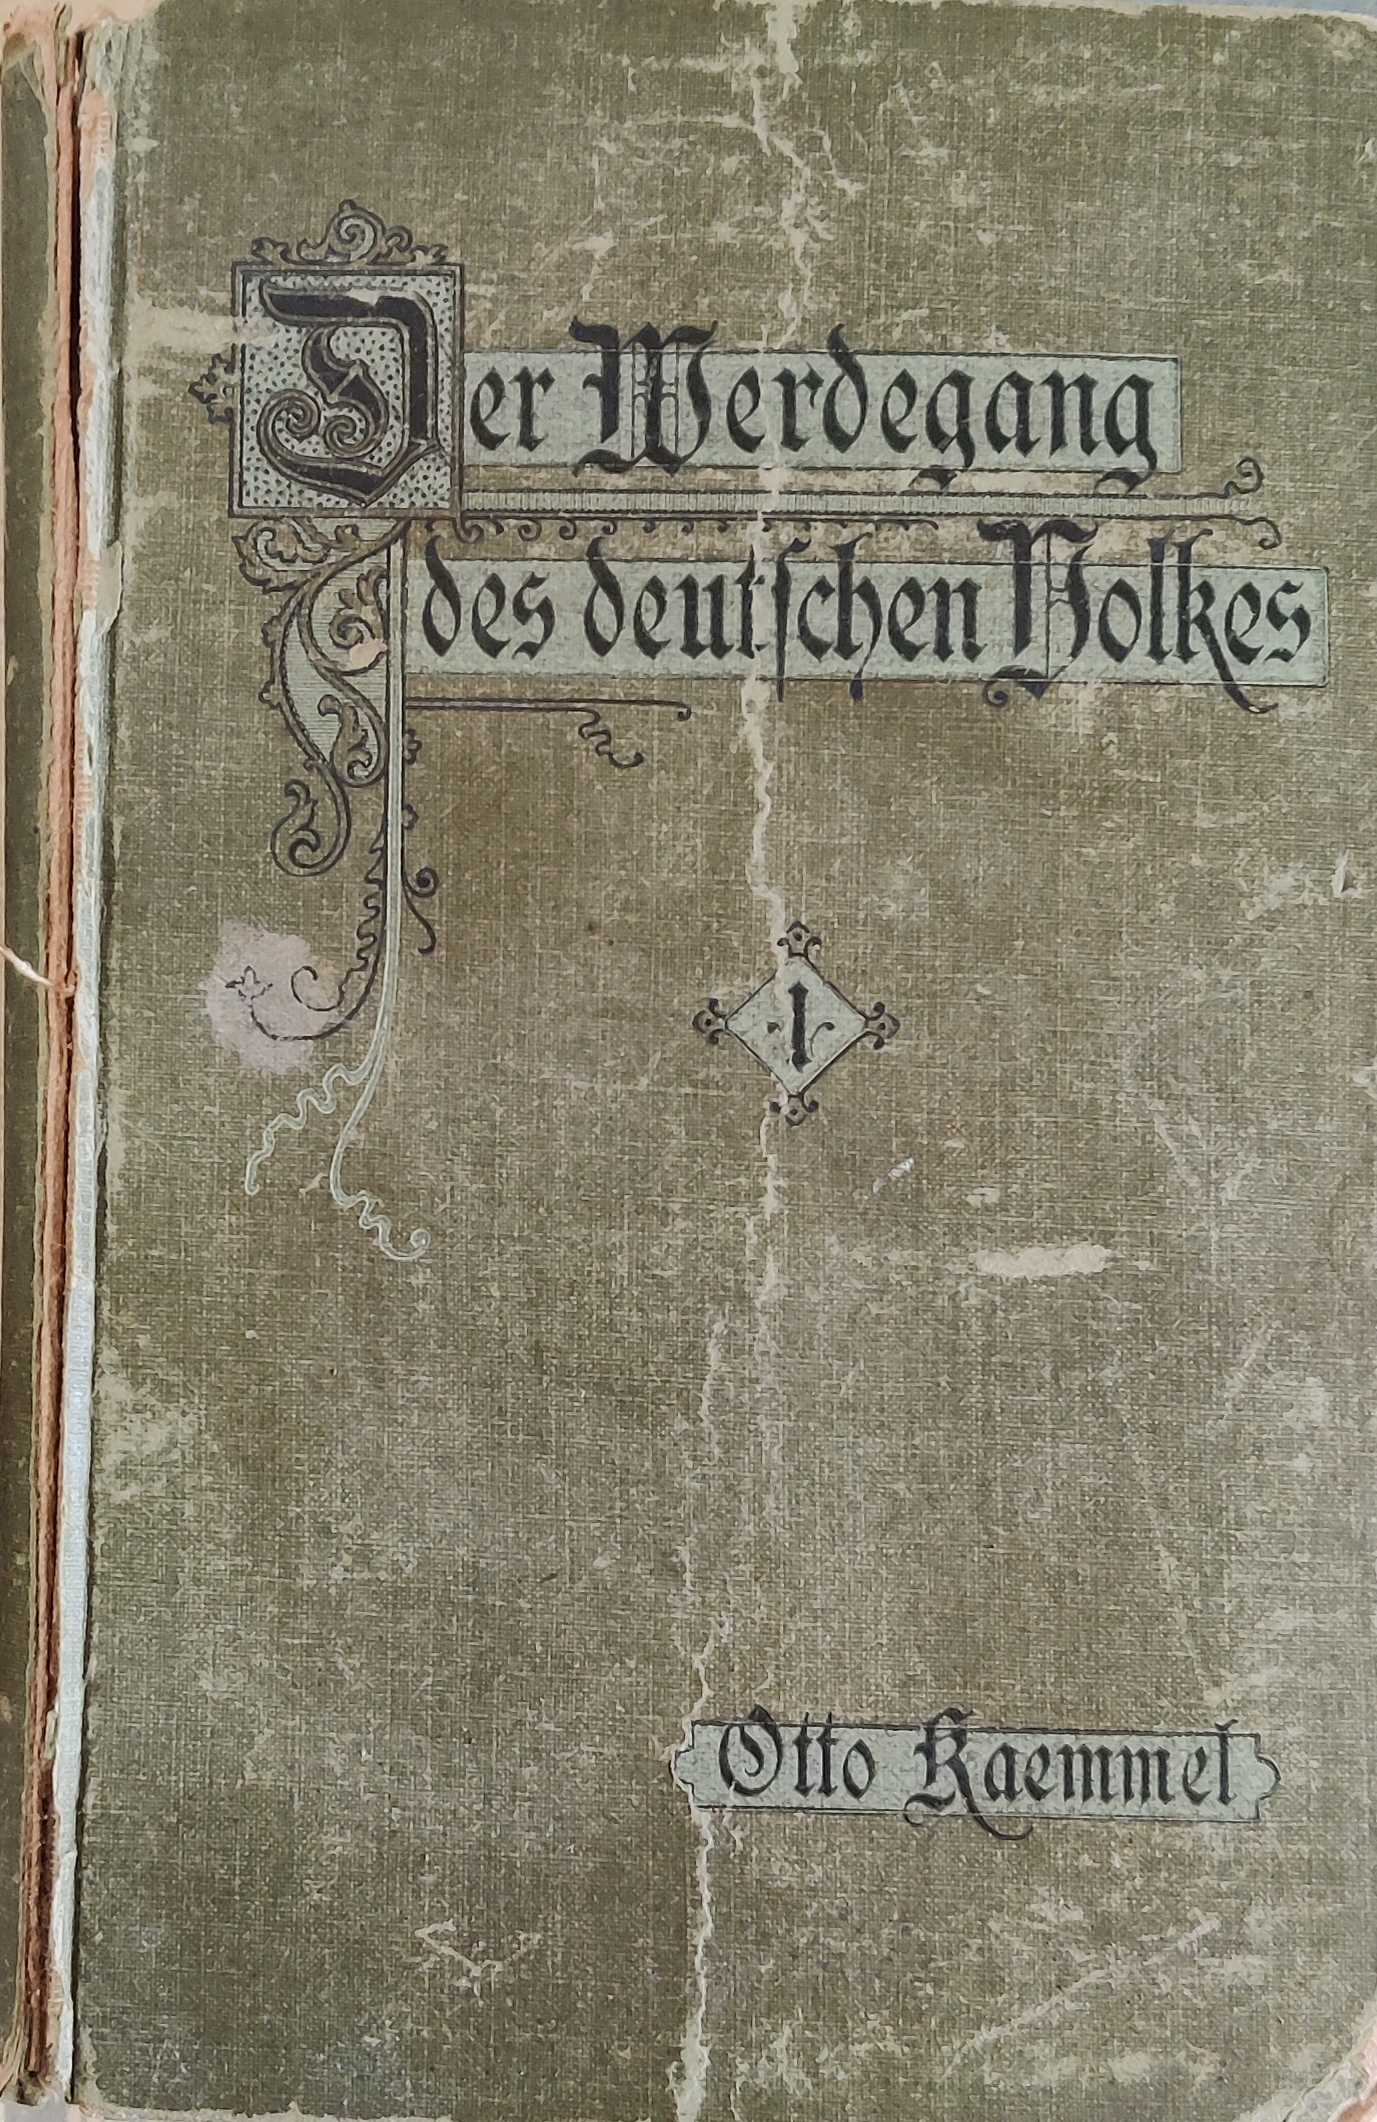 Der Werdegang
des deutschen Volkes
I
Otto Kaemmel